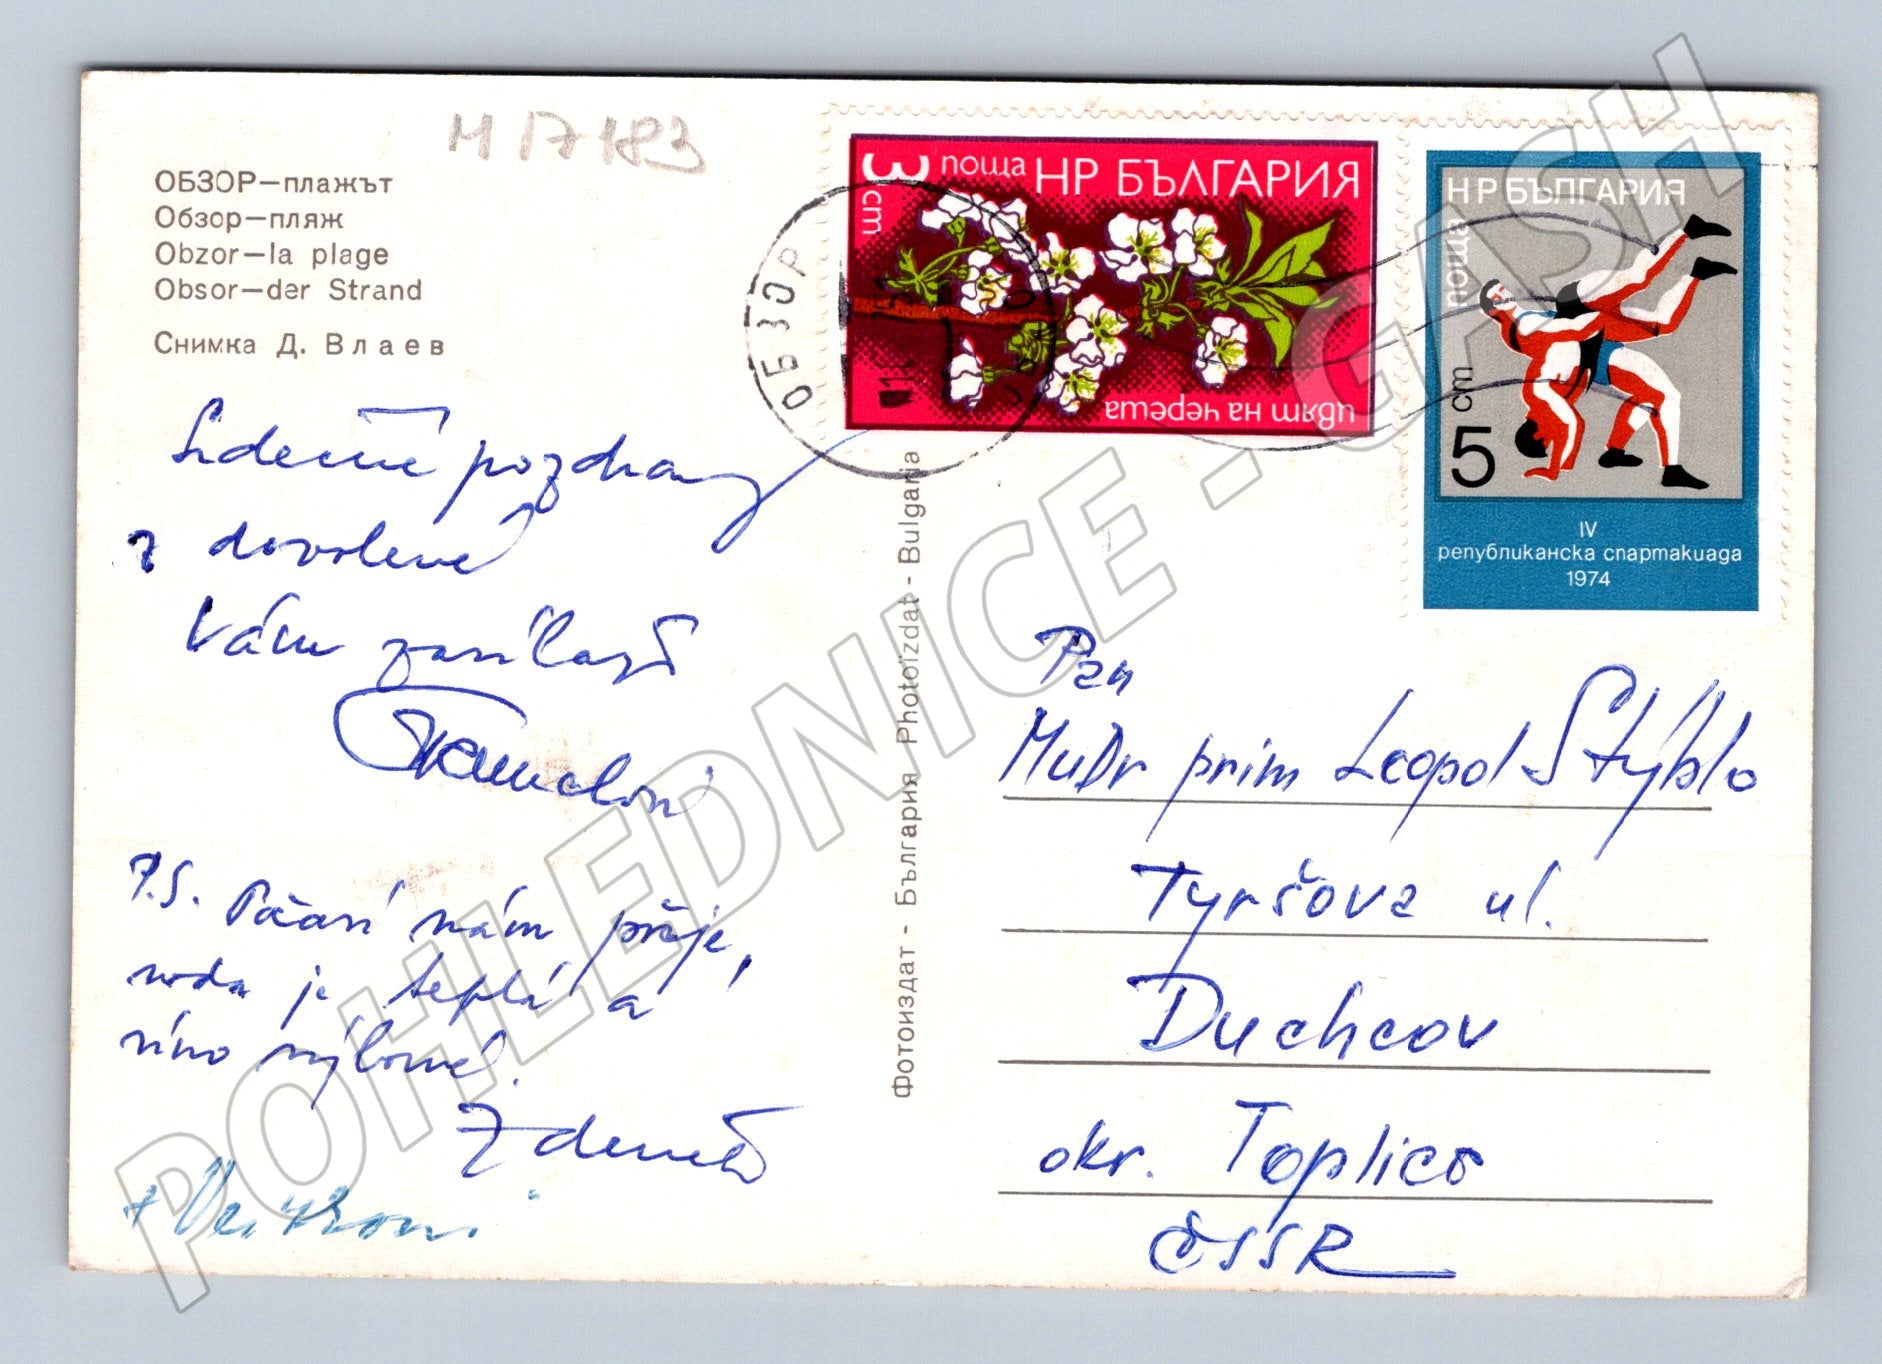 M 17183
ОБЗОР—плажът
Обзор—пляж
Obzor—la plage
Obsor—der Strand
Снимка Д. Влаев
Srdečné pozdravy
z dovolené
Vám zasílají
P.S. Počasí nám přeje,
voda je teplá a
víno výborné.
Zdeněk
+
Фотоиздат - България Photoizdat - Bulgaria
ОБЗОР
3 ст
поща НР БЪЛГАРИЯ
цвят на череша
НР БЪЛГАРИЯ
поща
5 ст
IV
републиканска спартакиада
1974
Pan
MuDr prim Leopold Stýblo
Tyršova ul.
Duchcov
okr. Teplice
ČSSR
POHLEDNICE - GASH